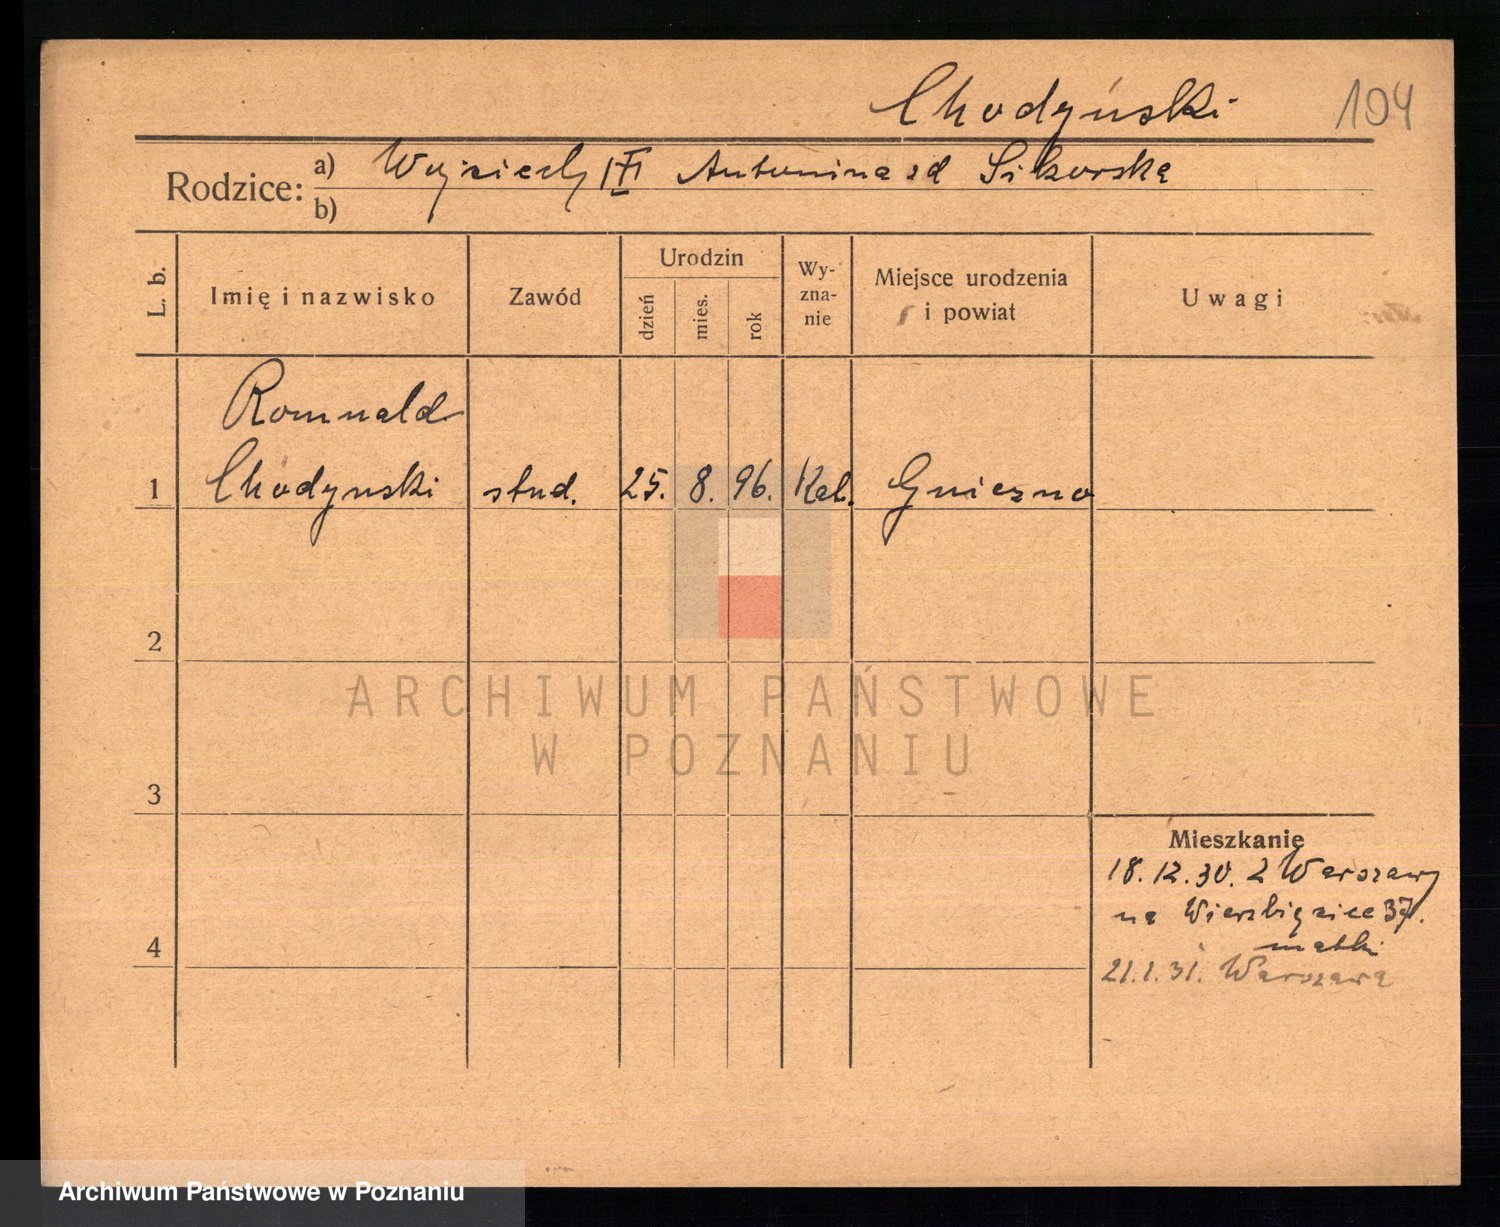 Chodyński 104
Rodzice:
a) Wojciech Antonina zd Sikorska
b)
L. b.
Imię i nazwisko
Zawód
Urodzin
dzień
mies.
rok
Wy-
zna-
nie
Miejsce urodzenia
i powiat
Uwagi
Romuald
1 Chodynski stud. 25. 8. 96. Kat. Gniezno
2
3
4
ARCHIWUM PAŃSTWOWE
W POZNANIU
Mieszkanie
18.12.30. z Warszawy
na Wierzbięcice 37.
matki
21.1.31. Warszawa
Archiwum Państwowe w Poznaniu